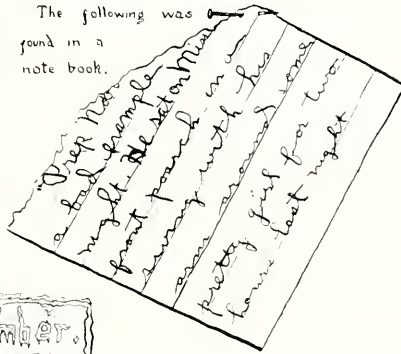 The following was
found in a
note book.
"Prep Not
a bad example
night He sat on Miss
front poarch in a
swing with his
arm around some
pretty girl for two
hours last night
mber.